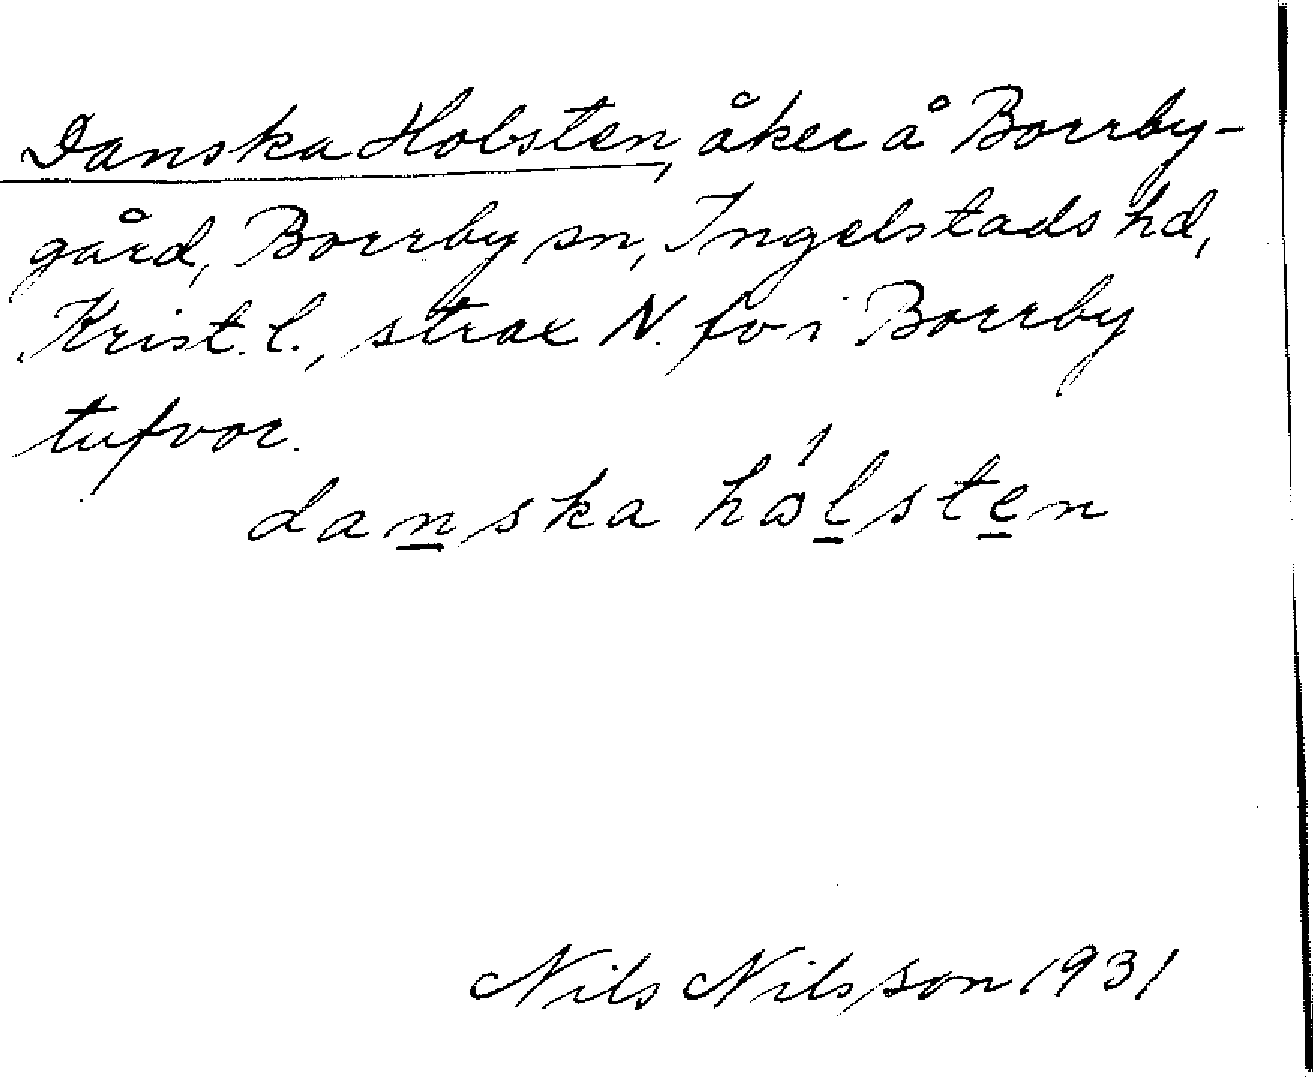 Danska Holsten, åker å Borrby-
gård, Borrby sn, Ingelstads hd,
Krist. l., strax N. för Borrby
tufvor.
danska hålsten
Nils Nilsson 1931